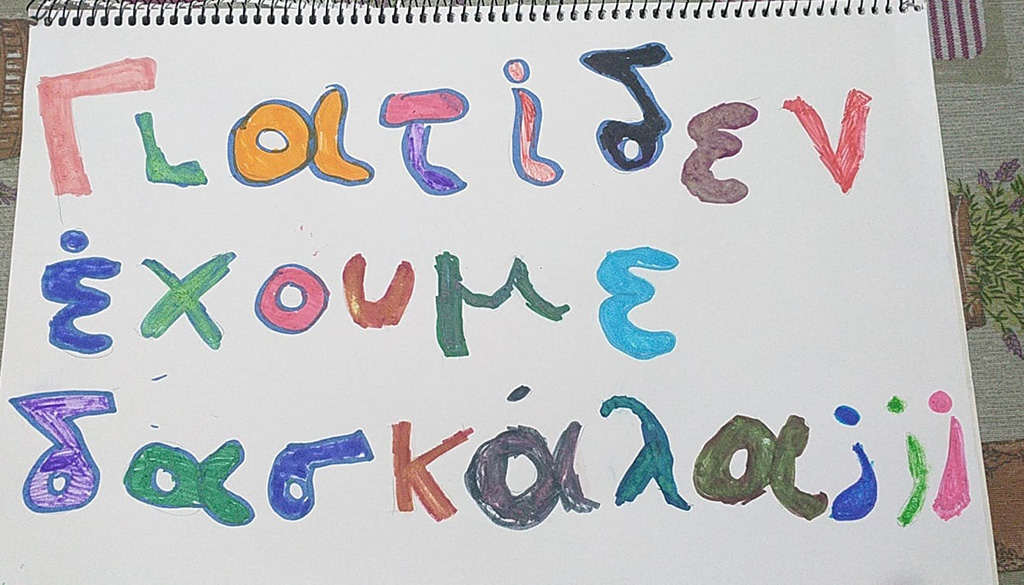 Γιατί δεν
έχουμε
δασκάλα;;;